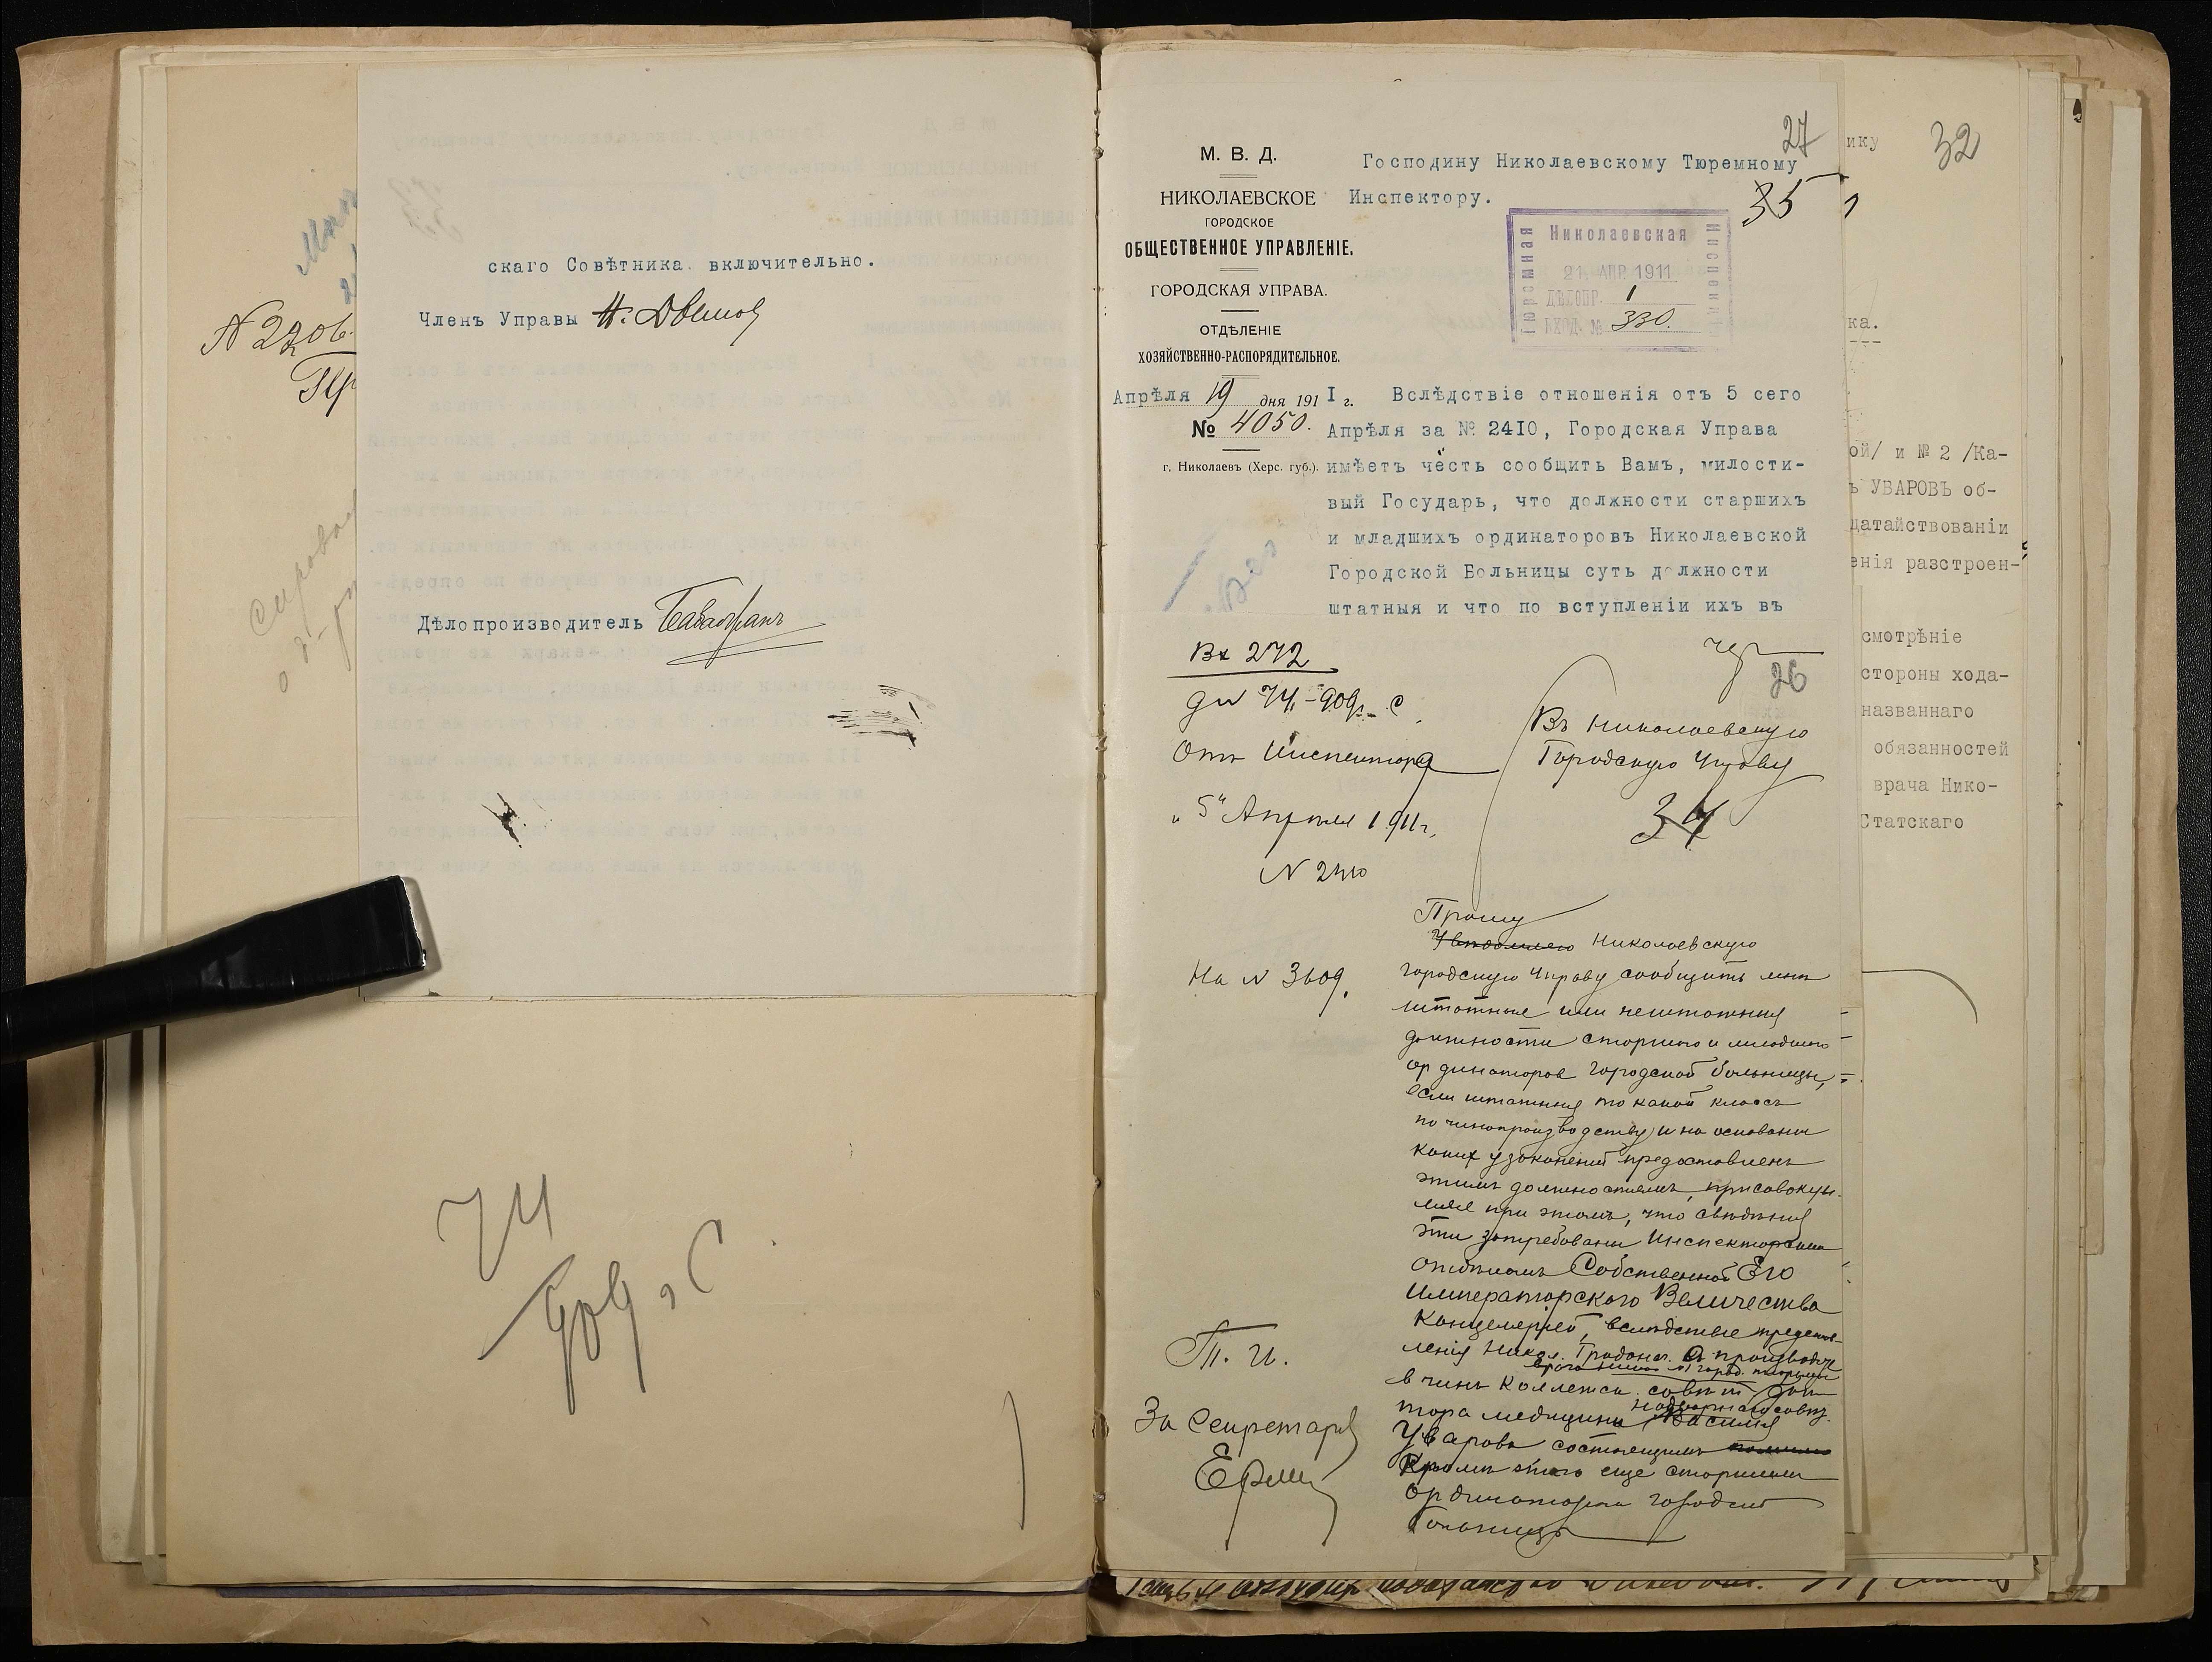 скаго Совѣтника включительно.
Членъ Управы
Дѣлопроизводитель
N 2206
74
909 г С
М. В. Д.
НИКОЛАЕВСКОЕ
ГОРОДСКОЕ
ОБЩЕСТВЕННОЕ УПРАВЛЕНІЕ.
ГОРОДСКАЯ УПРАВА.
ОТДѢЛЕНІЕ
ХОЗЯЙСТВЕННО-РАСПОРЯДИТЕЛЬНОЕ.
Апрѣля 19 дня 1911 г.
№ 4050.
г. Николаевъ (Херс. губ.).
27
Господину Николаевскому Тюремному
Инспектору.
35
Николаевская
Тюремная
Инспекція
21 АПР. 1911
ДѢЛОПР. 1
ВХОД. № 330.
Вслѣдствіе отношенія отъ 5 сего
Апрѣля за № 2410, Городская Управа
имѣетъ честь сообщить Вамъ, милости-
вый Государь, что должности старшихъ
и младшихъ ординаторовъ Николаевской
Городской Больницы суть должности
штатныя и что по вступленіи ихъ въ
Вх 272
74 - 909 г. С.
Отъ Инспектора
"5" Апрѣля 1911 г.
N 2410
26
Въ Николаевскую
Городскую Управу
34
На N 3609.
Прошу
Увѣдомляю Николаевскую
городскую Управу сообщить мнѣ
штатныя или нештатныя
должности старшаго и младшаго
ординаторовъ городской больницы,
если штатныя то какой классъ
по чинопроизводству и на основаніи
какихъ узаконеній предоставленъ
этимъ должностямъ, присовокуп-
ляя при этомъ, что свѣдѣнія
эти затребованы Инспекторскимъ
отдѣломъ Собственной Его
Императорскаго Величества
Канцеляріей, вслѣдствіе представ-
ленія Никол. Градонач. О производствѣ
в чинъ Коллежск. совѣт. док-
надворнаго совѣт.
тора медицины Василія
Уварова состоящимъ
Кромѣ этого еще старшимъ
ординаторомъ городской
больницы
Т. И.
За Секретаря
32
ику
ка.
ой/ и № 2 /Ка-
ъ УВАРОВЪ об-
датайствованіи
енія разстроен-
смотрѣніе
стороны хода-
названнаго
обязанностей
врача Нико-
Статскаго